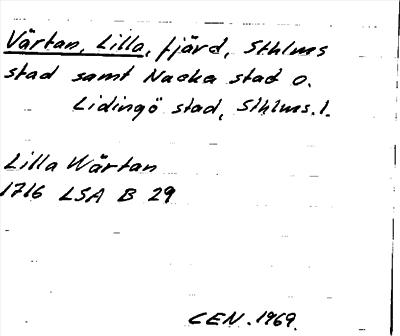 Värtan, Lilla, fjärd, Sthlms
stad samt Nacka stad o.
Lidingö stad, Sthlms. l.
Lilla Wärtan
1716 LSA B 29
CEN. 1969.